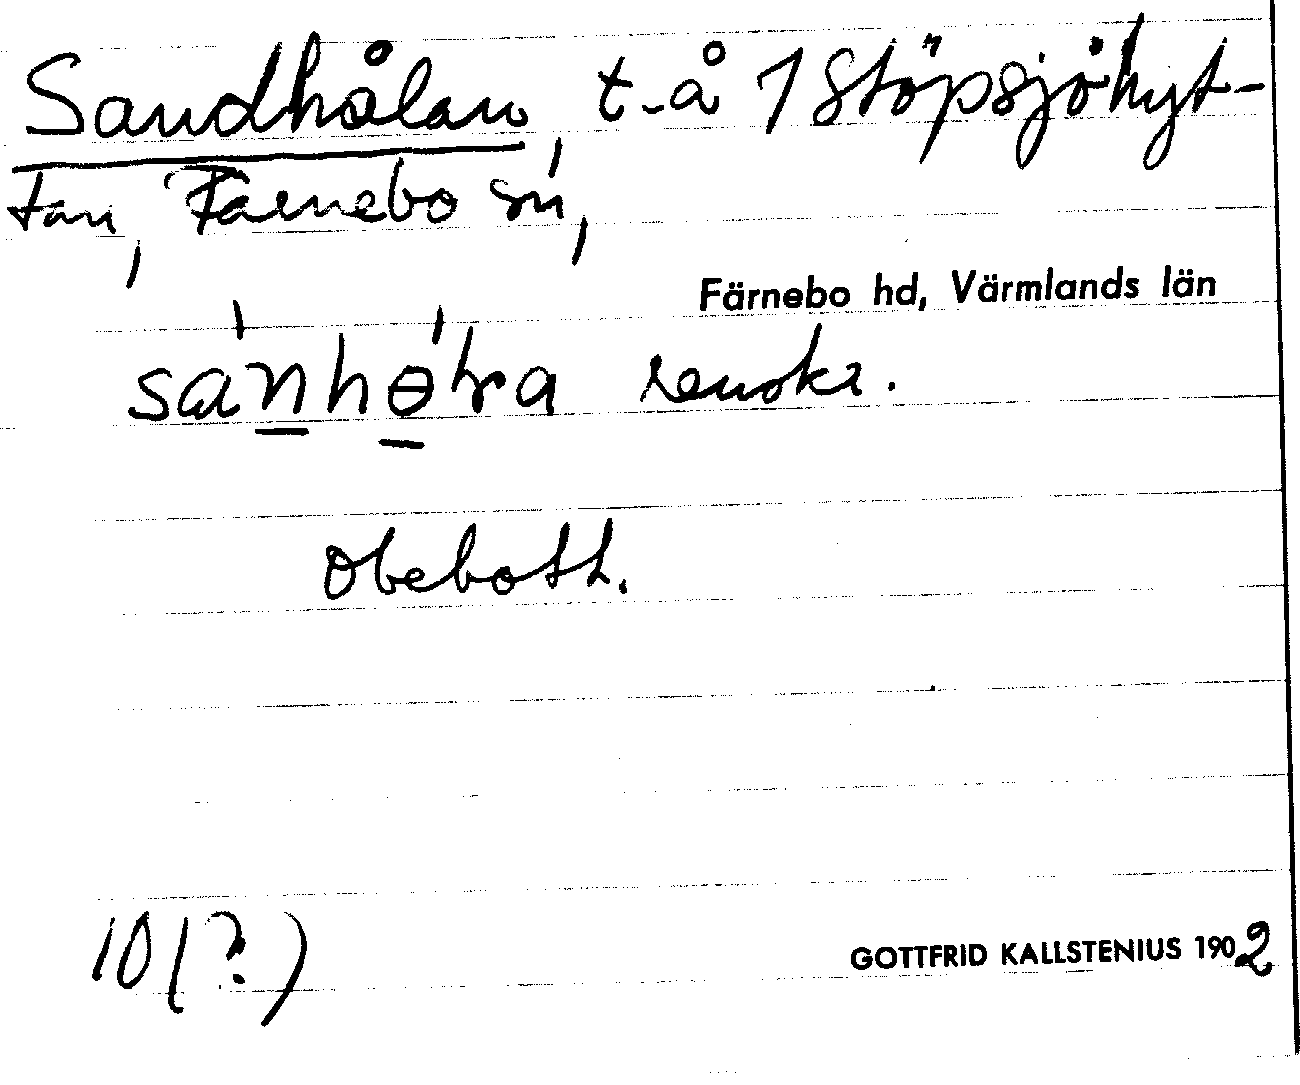 Sandhålan, t-å 1 Stöpsjöhyt-
tan, Färnebo sn,
Färnebo hd, Värmlands län
renskr.
Obebott.
10(?)
GOTTFRID KALLSTENIUS 1902